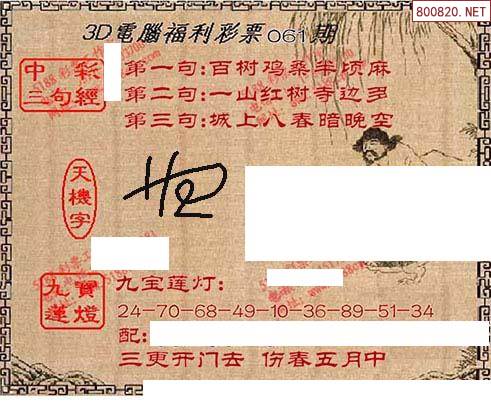 800820.NET
3D電腦福利彩票061期
中彩
三句經
第一句:百树鸡桑半顷麻
第二句:一山红树寺边多
第三句:城上八春暗晚空
天機字
九寶蓮燈
九宝莲灯:
24-70-68-49-10-36-89-51-34
配:
三更开门去 伤春五月中